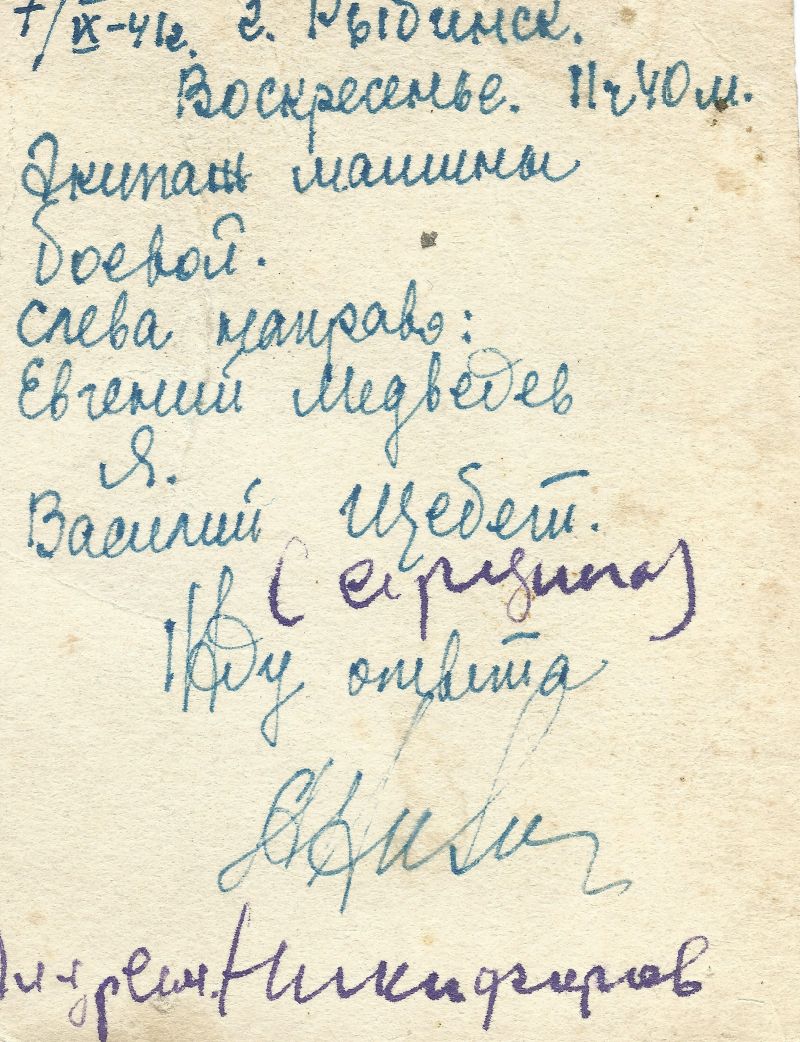 7/IX-41г. г. Рыбинск.
Воскресенье. 11ч 40м.
Экипаж машины
боевой.
Слева направо:
Евгений Медведев
Я.
Василий Щебет.
Жду ответа
Никифоров